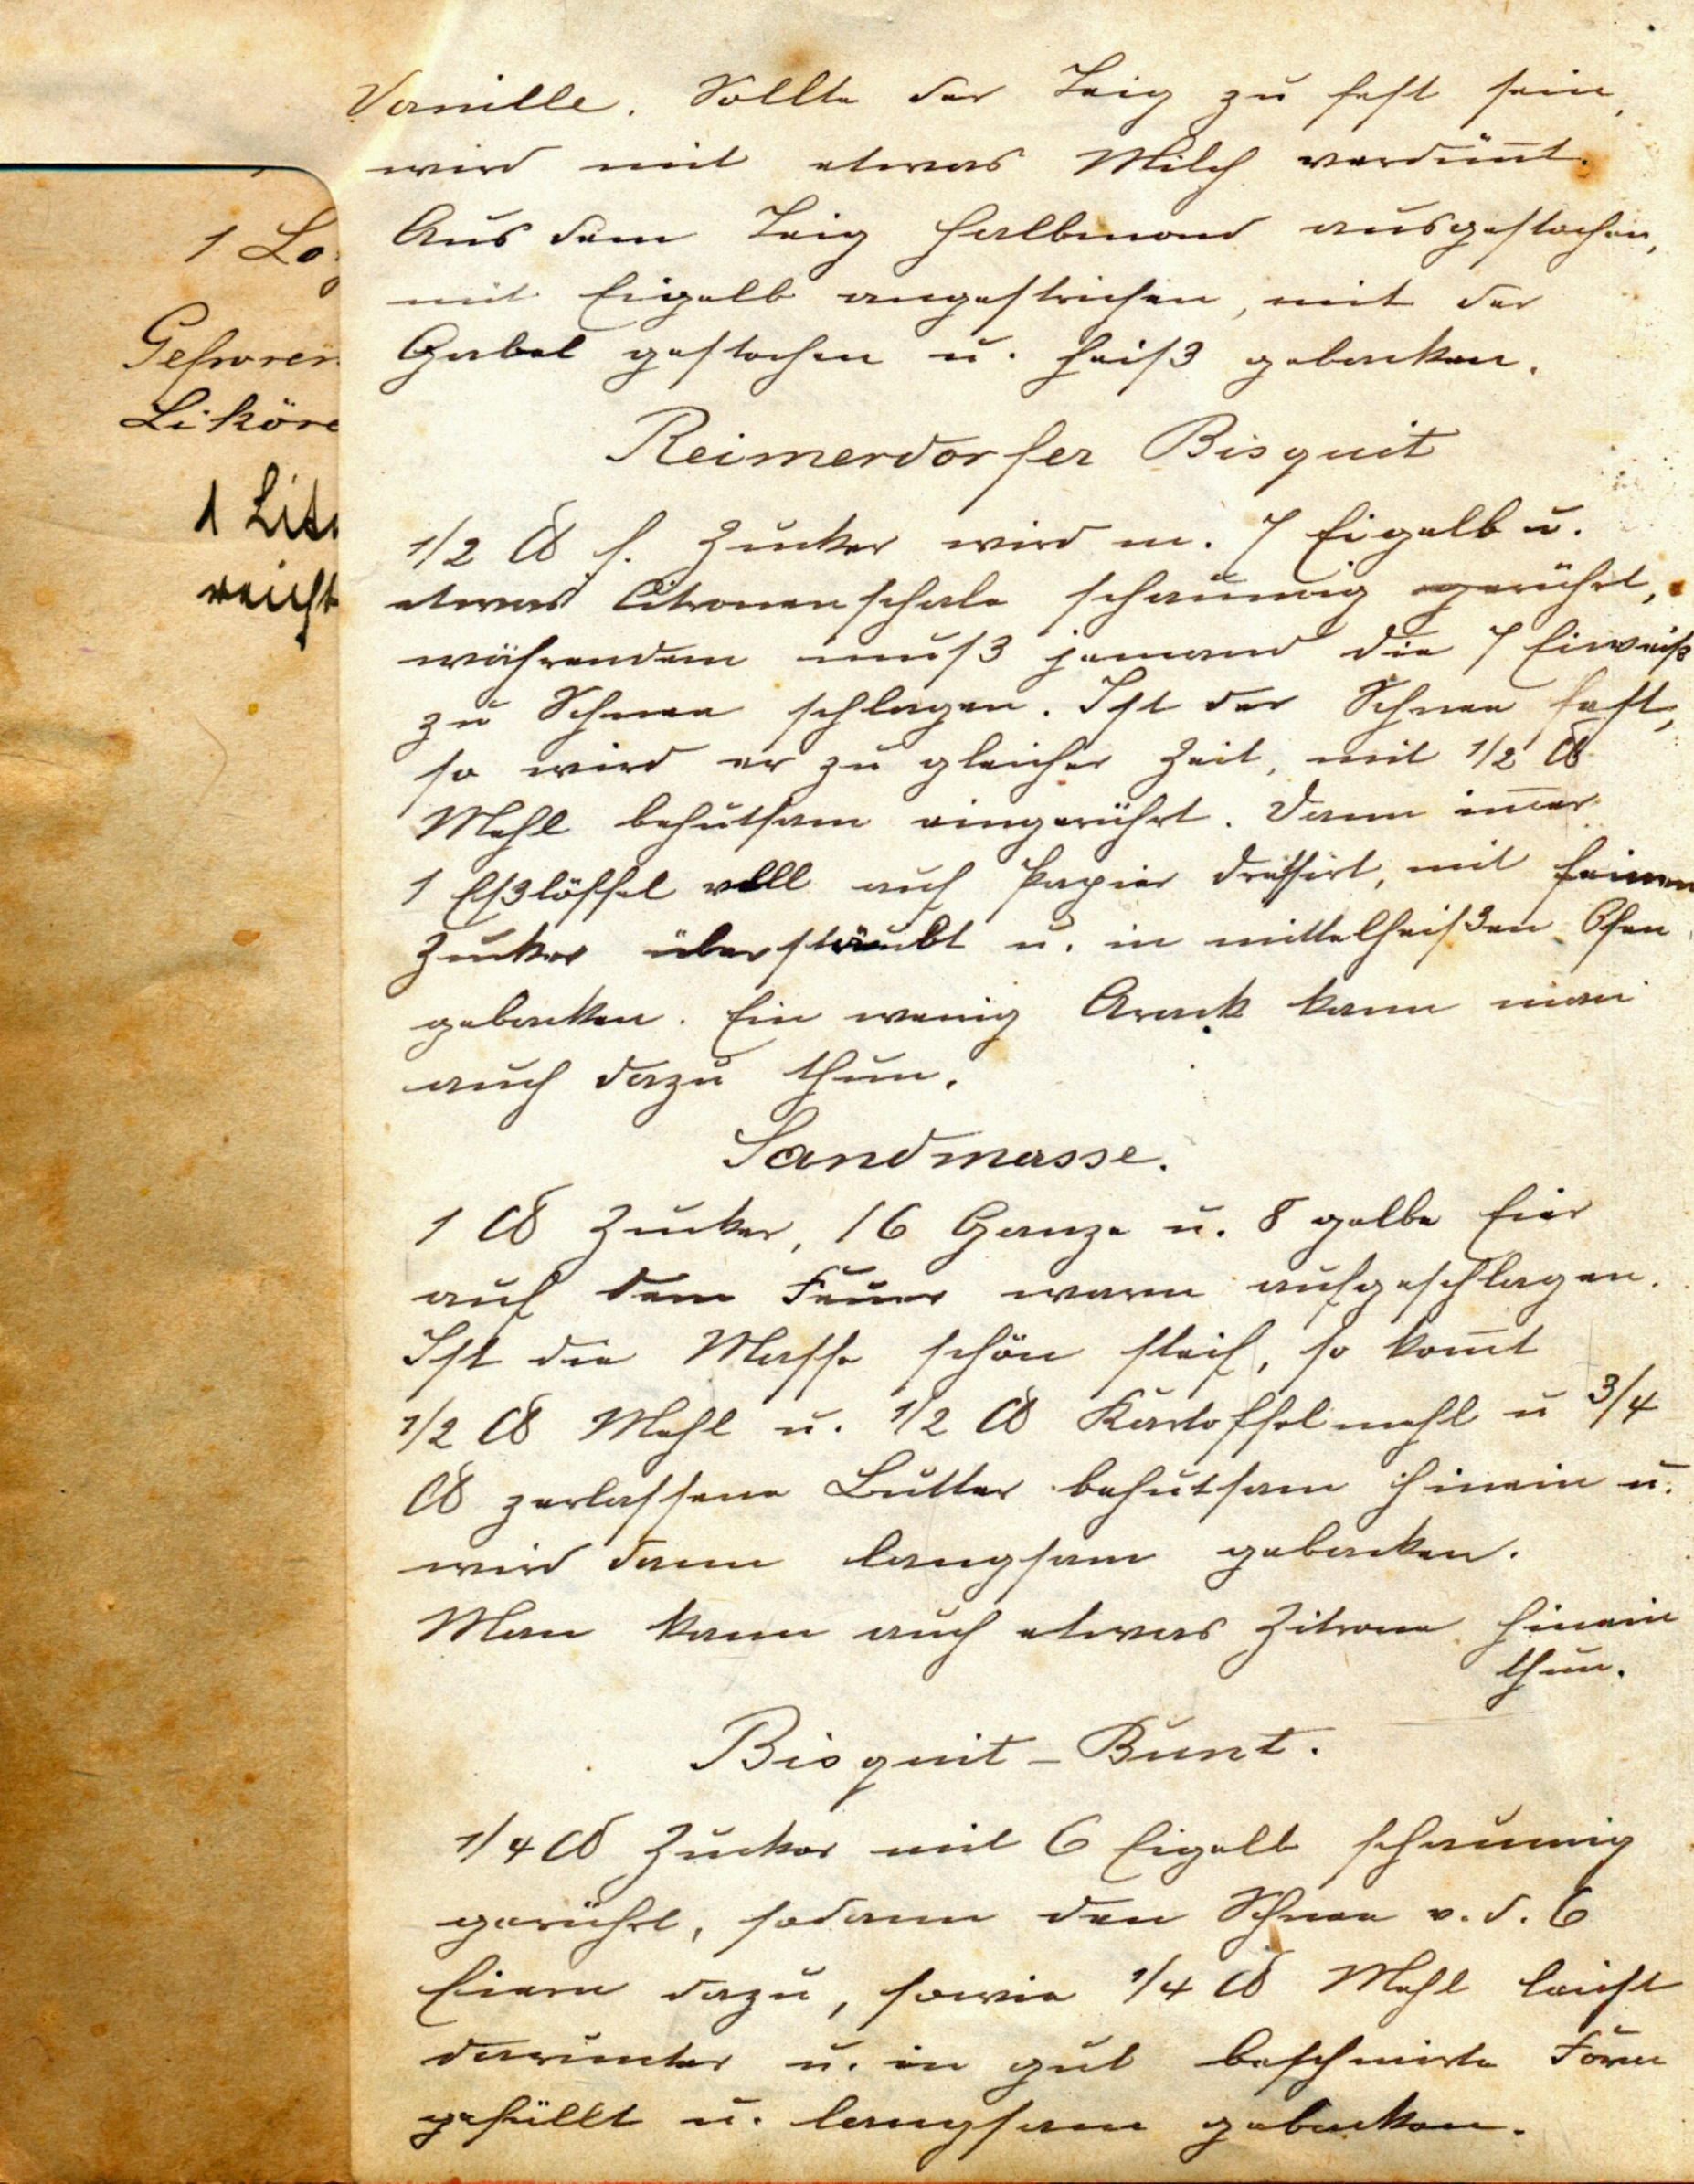 1 Lo
Gefroren
Liköre
1 Lite
reicht
Vanille. Sollte der Teig zu fest sein,
wird mit etwas Milch verdün̅t.
Aus dem Teig Halbmond ausgestochen,
mit Eigelb angestrichen, mit der
Gabel gestochen u. heiß gebacken.
Reimerdorfer Bisquit
1/2 ℔ f. Zucker wird m. 7 Eigelb u.
etwas Citronenschale schaumig gerührt,
währendem muß jemand die 7 Eiweiß
zu Schnee schlagen. Ist der Schnee fest,
so wird er zu gleicher Zeit, mit 1/2 ℔
Mehl behutsam eingerührt. Dann im̅er
1 Eßlöffel voll auf Papier dressirt, mit feinem
Zucker überstäubt u. in mittelheißen Ofen
gebacken. Ein wenig Arack kann man
auch dazu thun.
Sandmasse.
1 ℔ Zucker, 16 Ganze u. 8 gelbe Eier
auf dem Feuer warm aufgeschlagen.
Ist die Masse schön steif, so kom̅t
1/2 ℔ Mehl u. 1/2 ℔ Kartoffelmehl u 3/4
℔ zerlassene Butter behutsam hinein u.
wird dann langsam gebacken.
Man kann auch etwas Zitrone hinein
thun.
Bisquit-Bunt.
1/4 ℔ Zucker mit 6 Eigelb schaumig
gerührt, sodann den Schnee v. d. 6
Eiern dazu, sowie 1/4 ℔ Mehl leicht
darunter u. in gut beschmirte Form
gefüllt u. langsam gebacken.